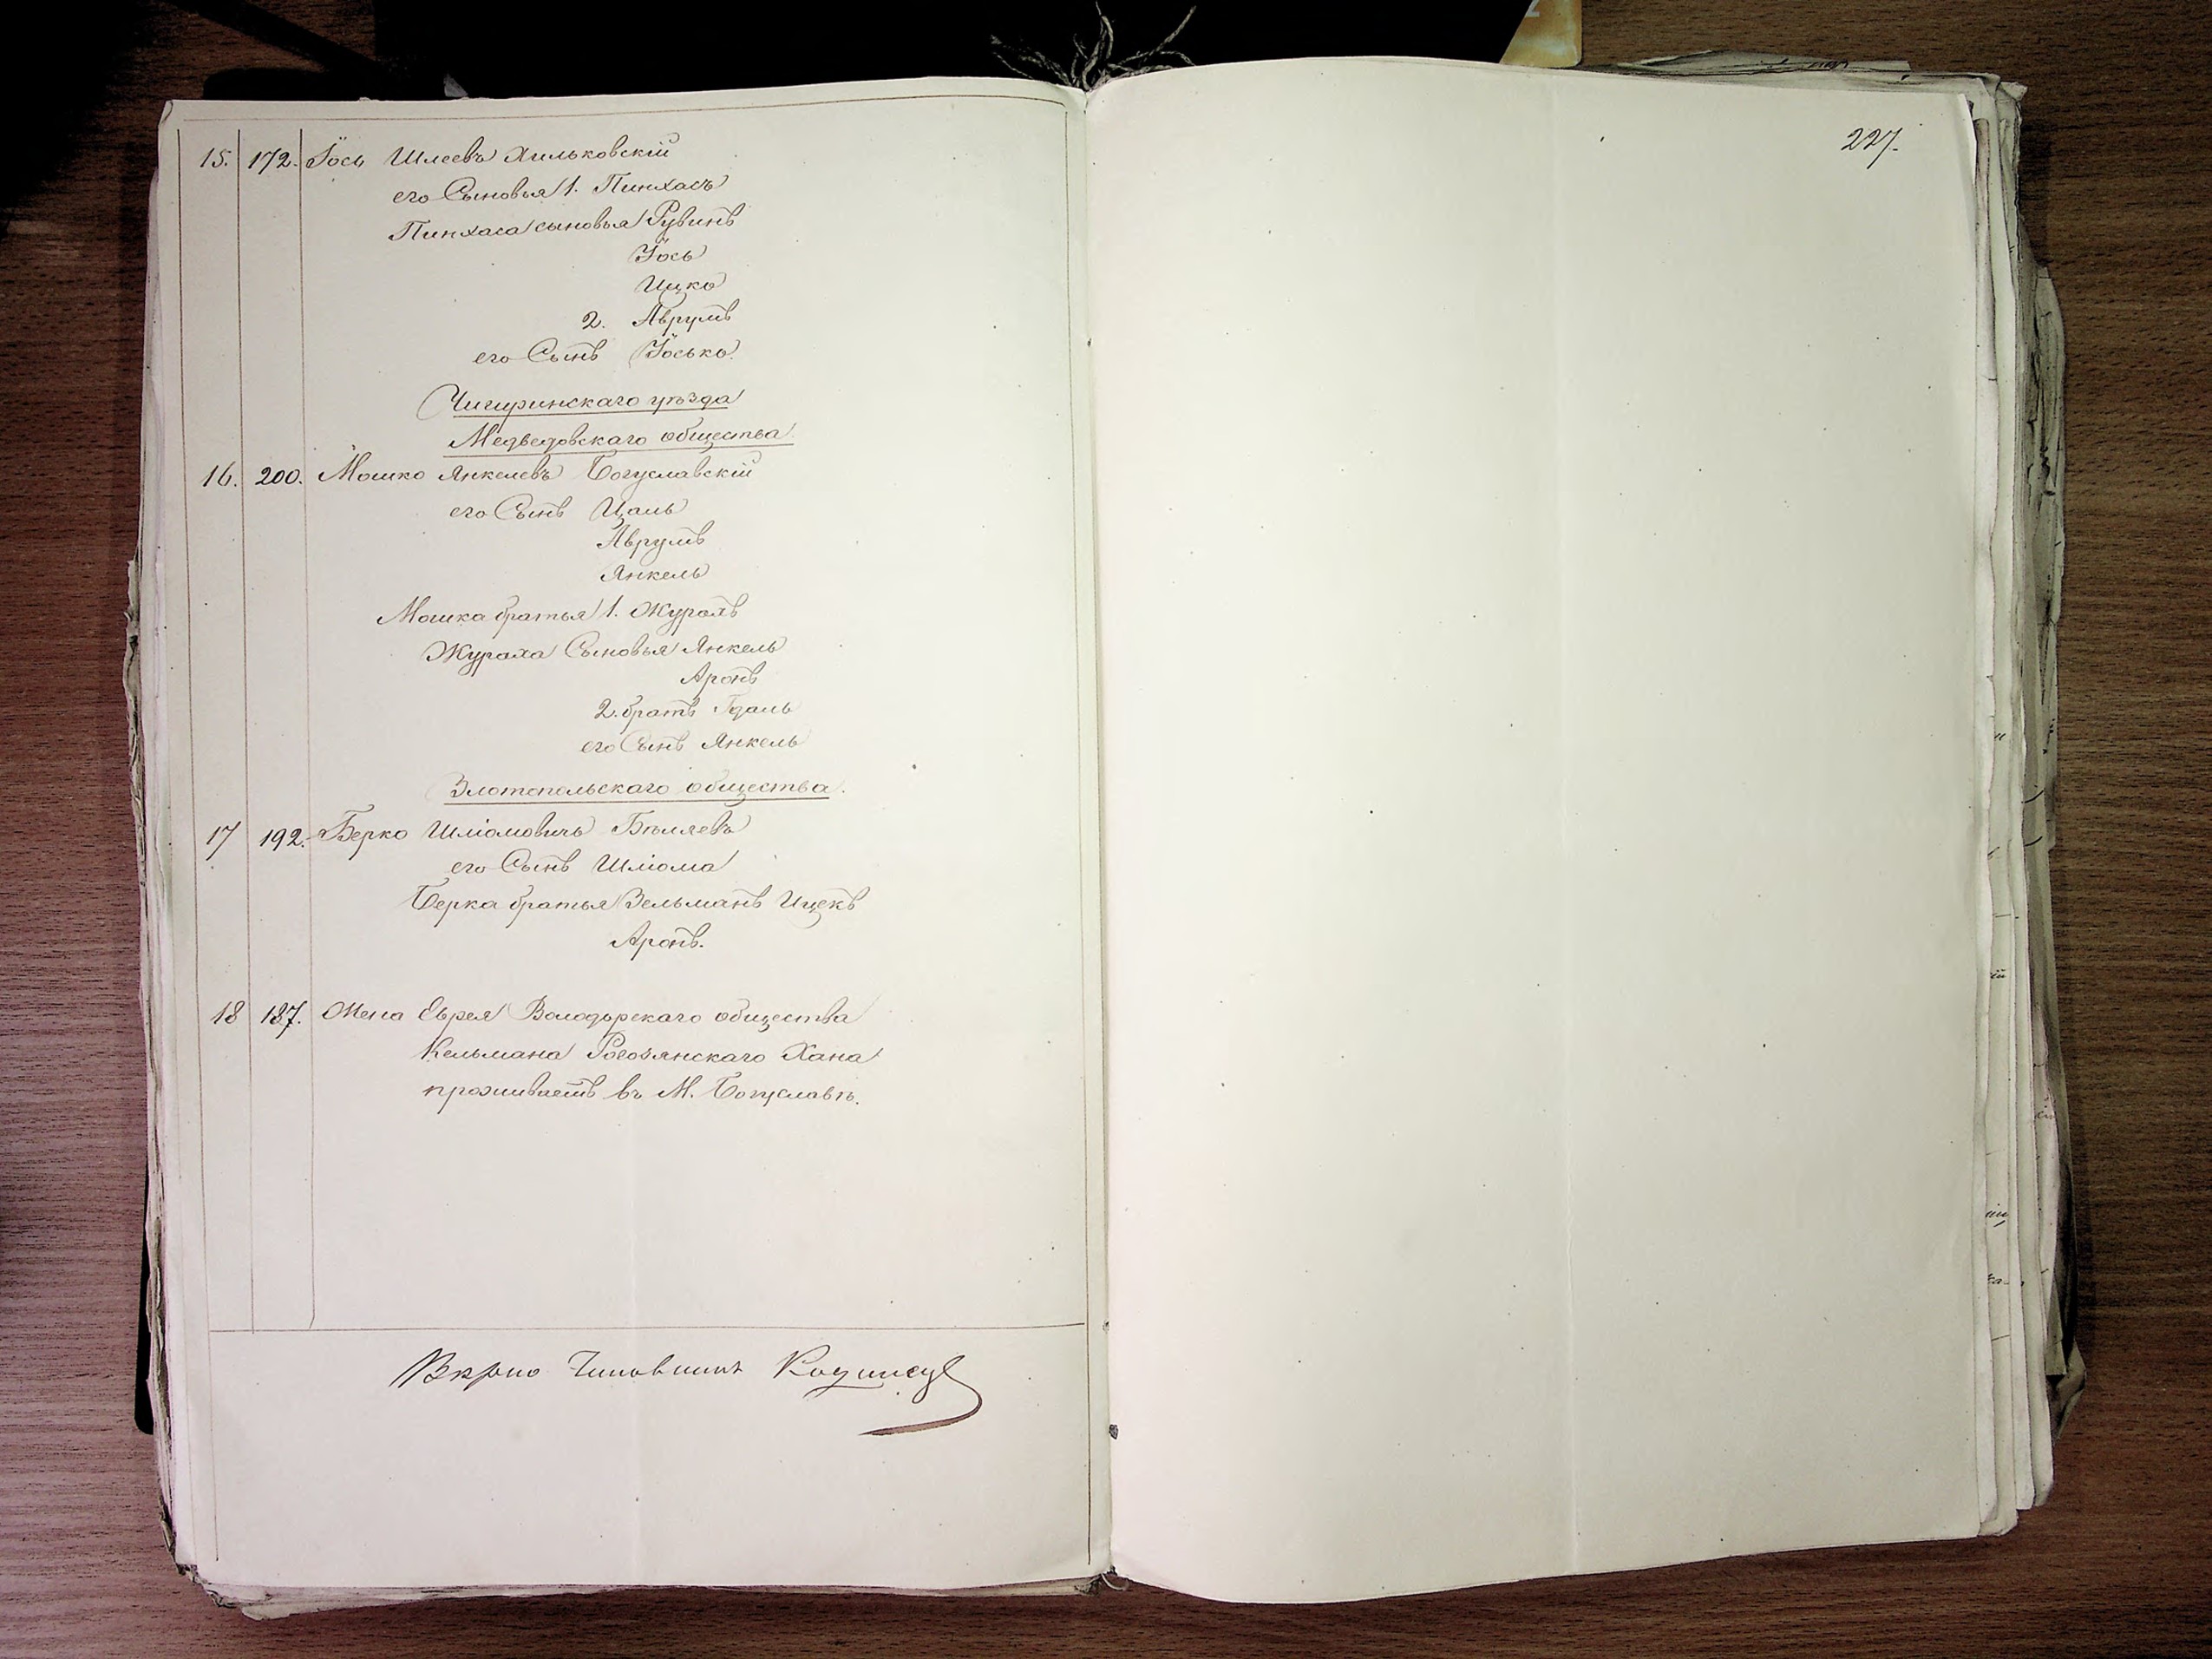 15. 172. Іось Шлеевъ Хильковскій
его Сыновья 1. Пинхасъ
Пинхаса сыновья Рувинъ
Іось
Ицко
2. Аврумъ
его Сынъ Іосько.
Чигиринскаго уѣзда
Медведовскаго общества.
16. 200. Мошко Янкелевъ Богуславскій
его Сынъ Цаль
Аврумъ
Янкель
Мошка братья 1. Журахъ
Жураха Сыновья Янкель
Аронъ
2. братъ Гдаль
его Сынъ Янкель
Златопольскаго общества.
17 192. Берко Шліомовичъ Бѣляевъ
его Сынъ Шліома
Берка братья Зельманъ Ицекъ
Аронъ.
18 187. Жена Еврея Володарскаго общества
Кельмана Хана
проживаетъ въ М. Богуславѣ.
Вѣрно Чиновникъ
227.